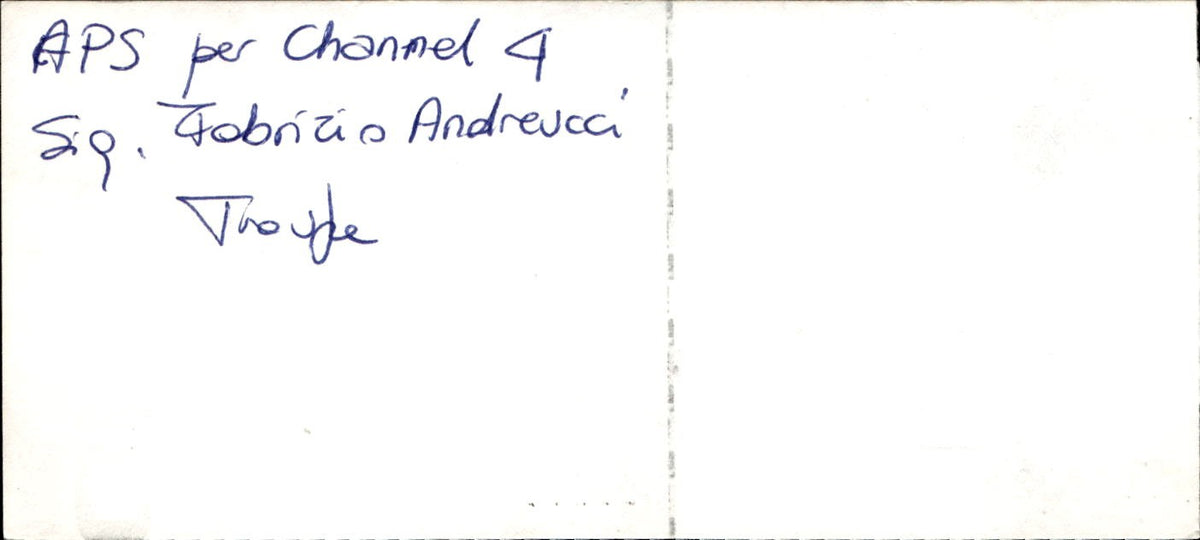 APS per Channel 4
Sig. Fabrizio Andreucci
Troupe